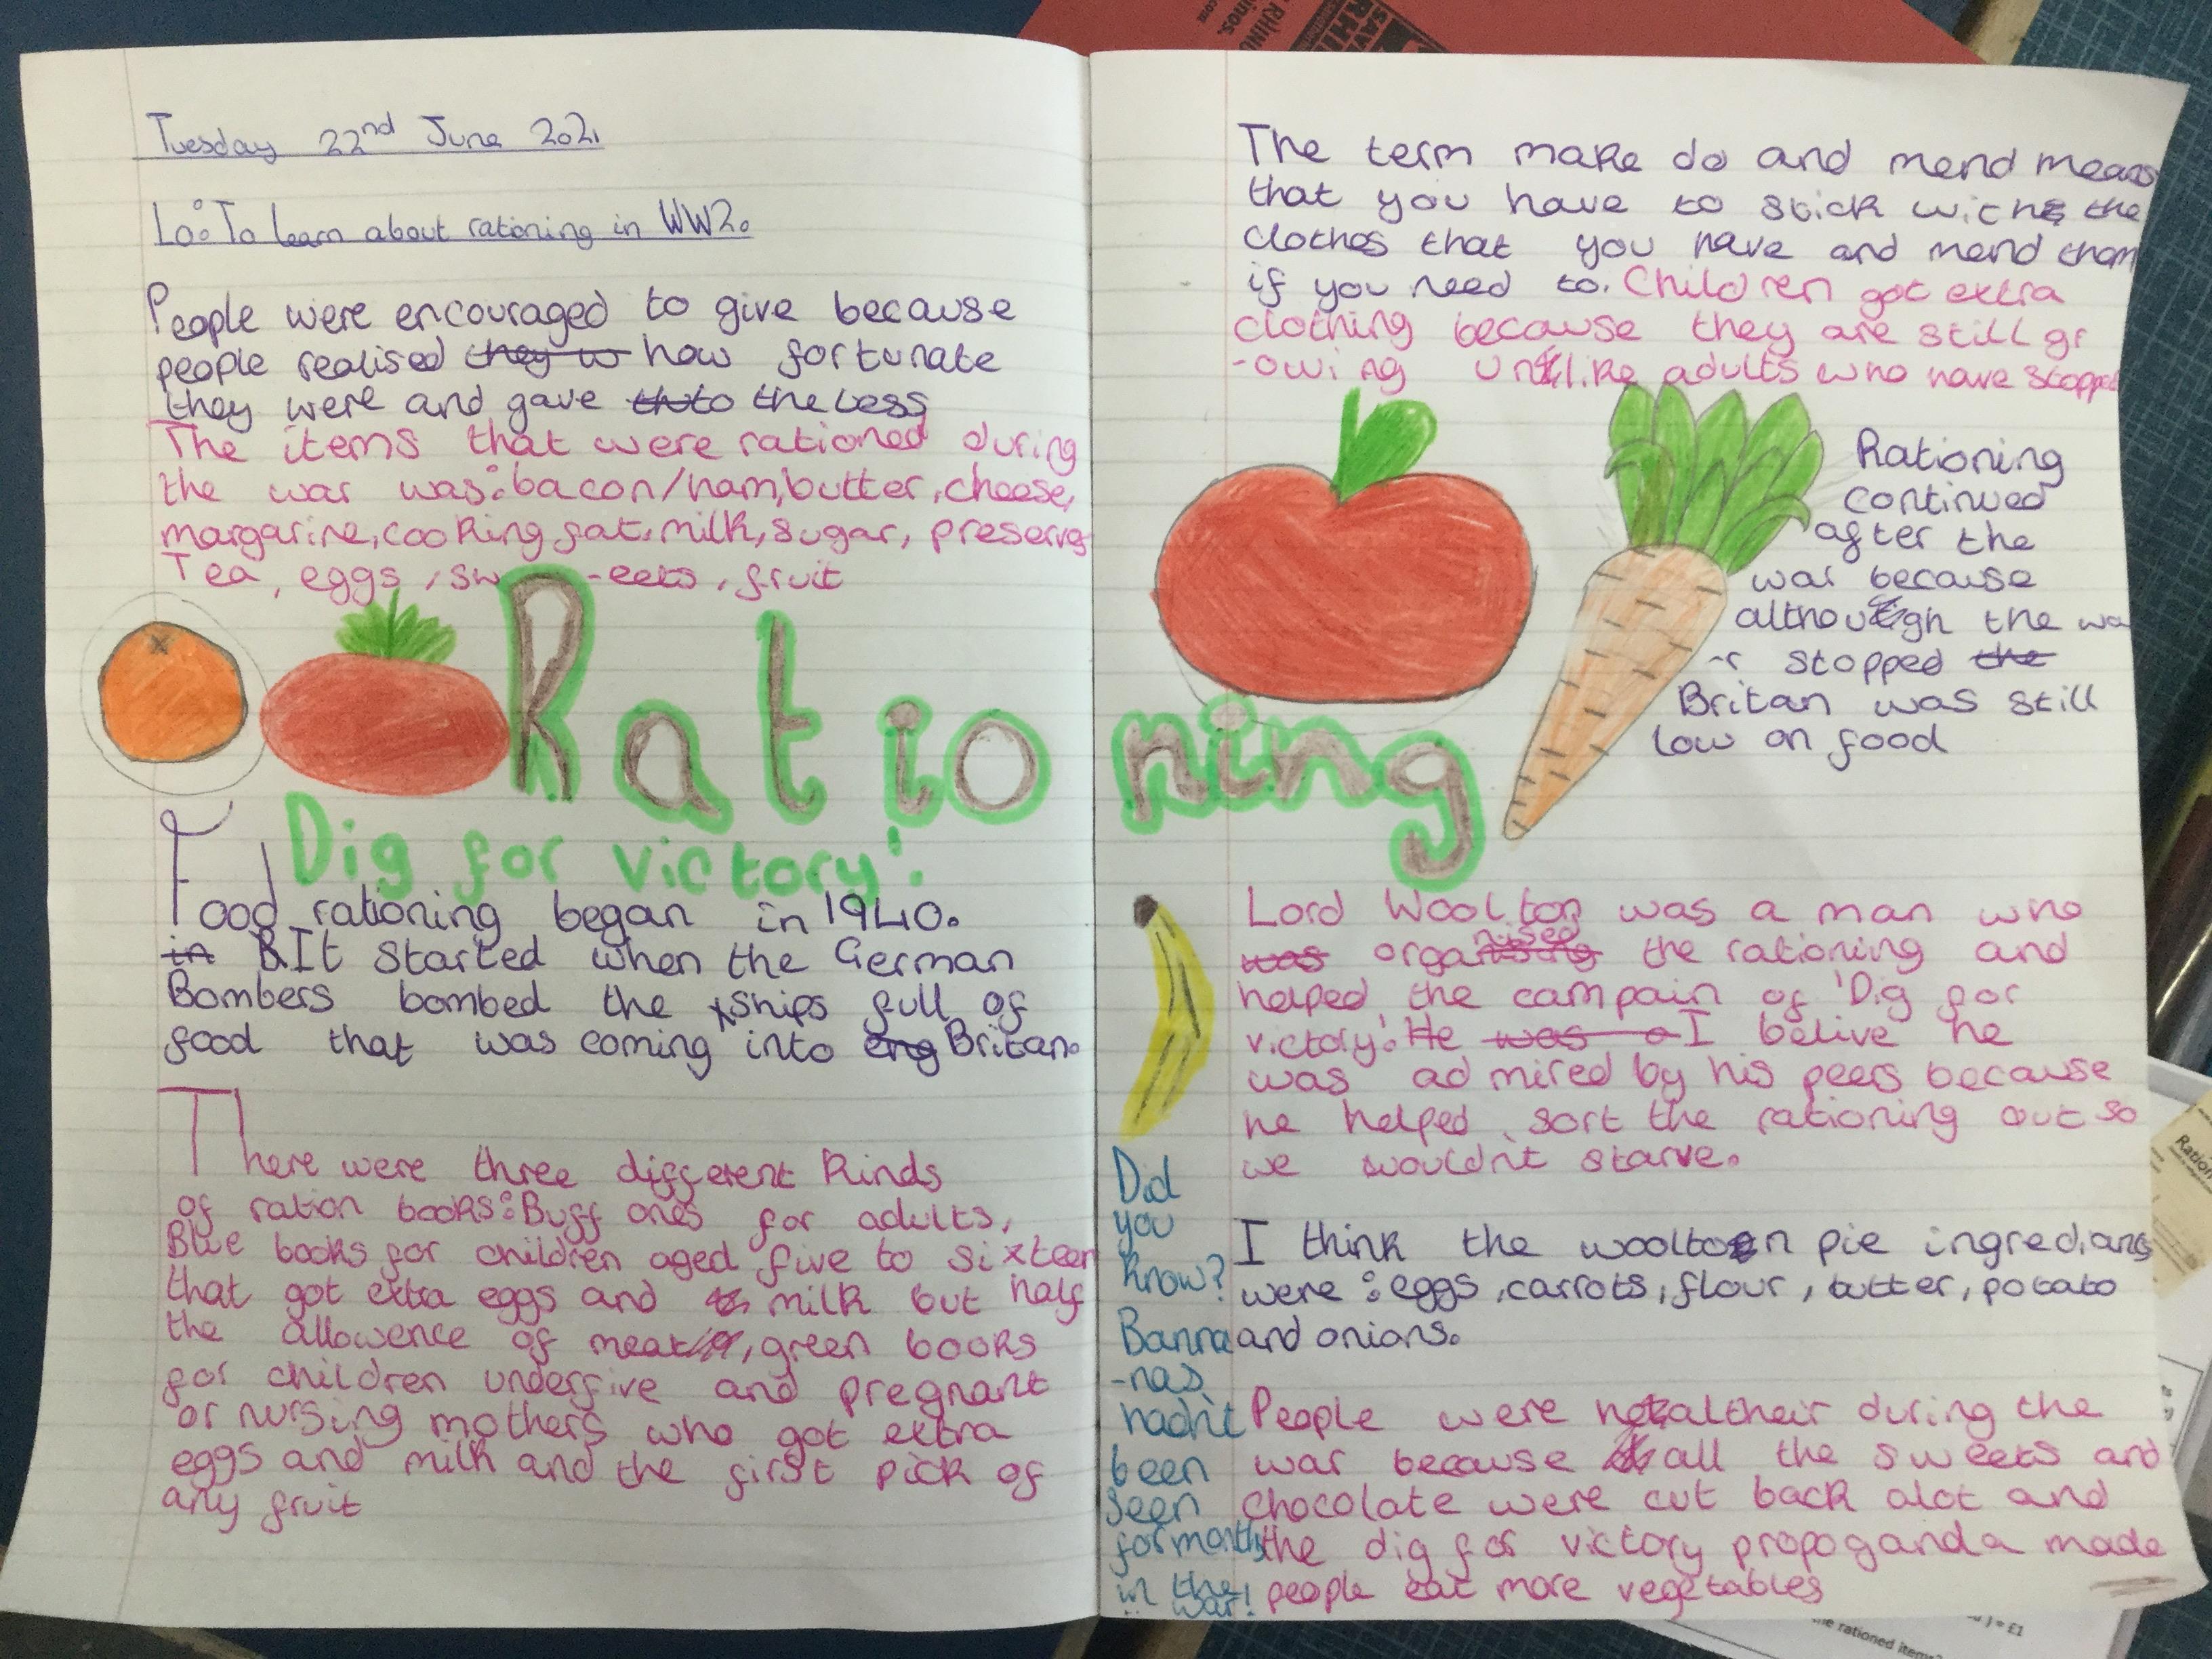 Tuesday 22nd June 2021
Lo: To learn about rationing in WW2.
People were encouraged to give because
people realised they w how fortunate
they were and gave to the less
The items that were rationed during
the war was: bacon/ham, butter, cheese,
margarine, cooking fat, milk, sugar, preserves
Tea, eggs, sw -eets, fruit
Rationing
Dig for victory!
Food rationing began in 1940.
in It started when the German
Bombers bombed the ships full of
food that was coming into eng Britan.
There were three different kinds
of ration books: Buff ones for adults,
Blue books for children aged five to sixteen
that got extra eggs and milk but half
the allowence of meat, green books
for children under five and pregnant
or nursing mothers who got extra
eggs and milk and the first pick of
any fruit
The term make do and mend means
that you have to stick with the
clothes that you have and mend them
if you need to. Children got extra
clothing because they are still gr
-owing unlike adults who have stopped
Rationing
continued
after the
war because
although the wa
-r stopped the
Britan was still
low on food
Lord Woolton was a man who
was organised the rationing and
helped the campain of 'Dig for
victory'. He was a I belive he
was admired by his peers because
he helped sort the rationing out so
we wouldn't starve.
I think the woolton pie ingredians
were: eggs, carrots, flour, butter, potato
and onians.
People were healtheir during the
war because all the sweets and
chocolate were cut back alot and
the dig for victory propoganda made
people eat more vegetables
Did
you
know?
Banna
-nas
hadn't
been
seen
for months
in the
war!
SAV
RHI
RHINO
inos.
.com
Ration
) = £1
he rationed items?